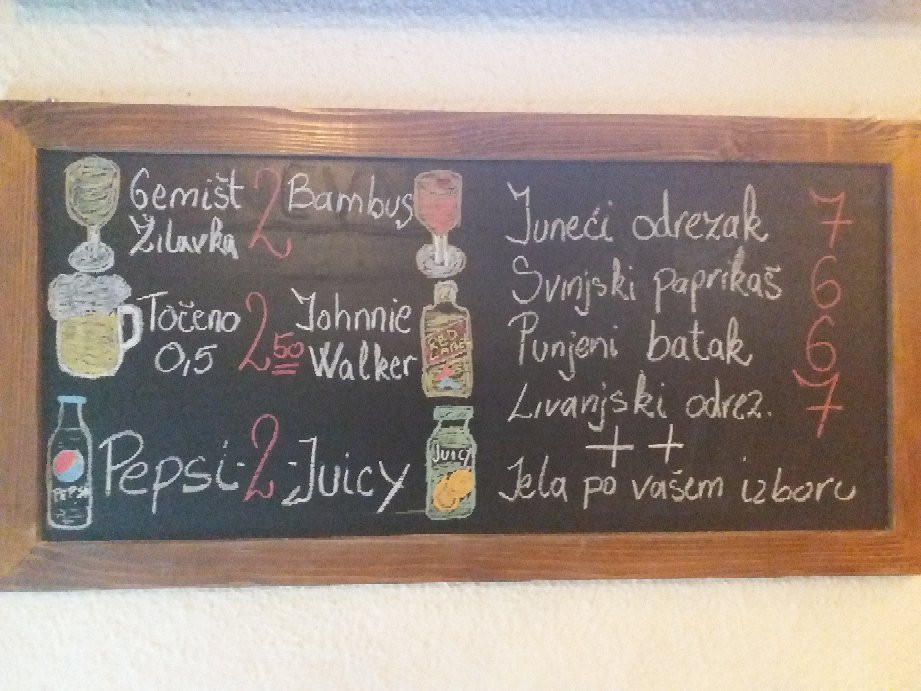 Gemišt 2 Bambus
Žilavka
Točeno 2 50 Johnnie
0,5 Walker
RED LABEL
Pepsi-2-Juicy
PEPSI
JUICY
Juneći odrezak 7
Svinjski paprikaš 6
Punjeni batak 6
Livanjski odrez. 7
+ +
Jela po vašem izboru